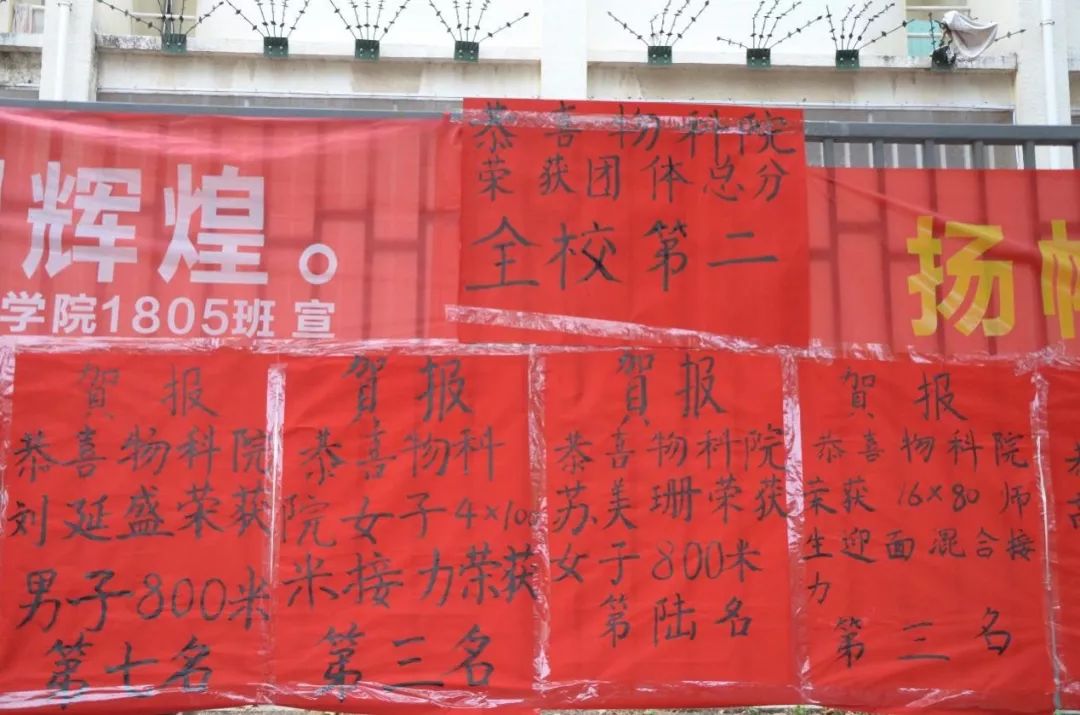 辉煌。
学院1805班 宣
恭喜物科院
荣获团体总分
全校第二
扬
賀报
恭喜物科院
刘延盛荣获
男子800米
第七名
賀报
恭喜物科
院女子4×100
米接力荣获
第三名
賀报
恭喜物科院
苏美珊荣获
女子800米
第陆名
賀报
恭喜物科院
荣获16×80师
生迎面混合接
力
第三名